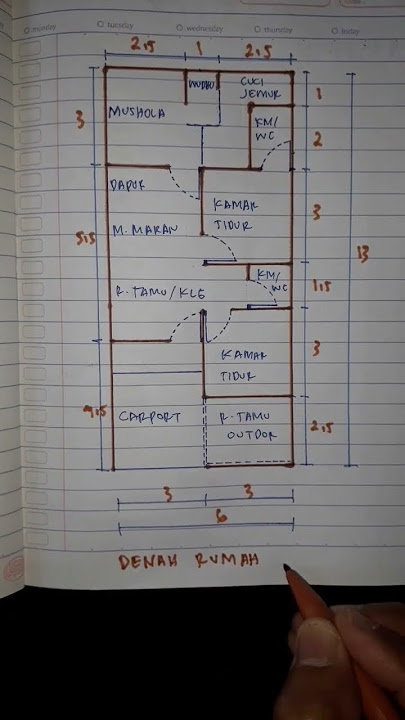 monday
tuesday
wednesday
thursday
friday
2,5
1
2,5
WUDHU
CUCI
JEMUR
1
3
MUSHOLA
KM/
WC
2
DAPUR
KAMAR
TIDUR
3
M. MAKAN
5,5
13
KM/
WC
1,5
R. TAMU/KLG
KAMAR
TIDUR
3
4,5
CARPORT
R. TAMU
OUTDOR
2,5
3
3
6
DENAH RUMAH